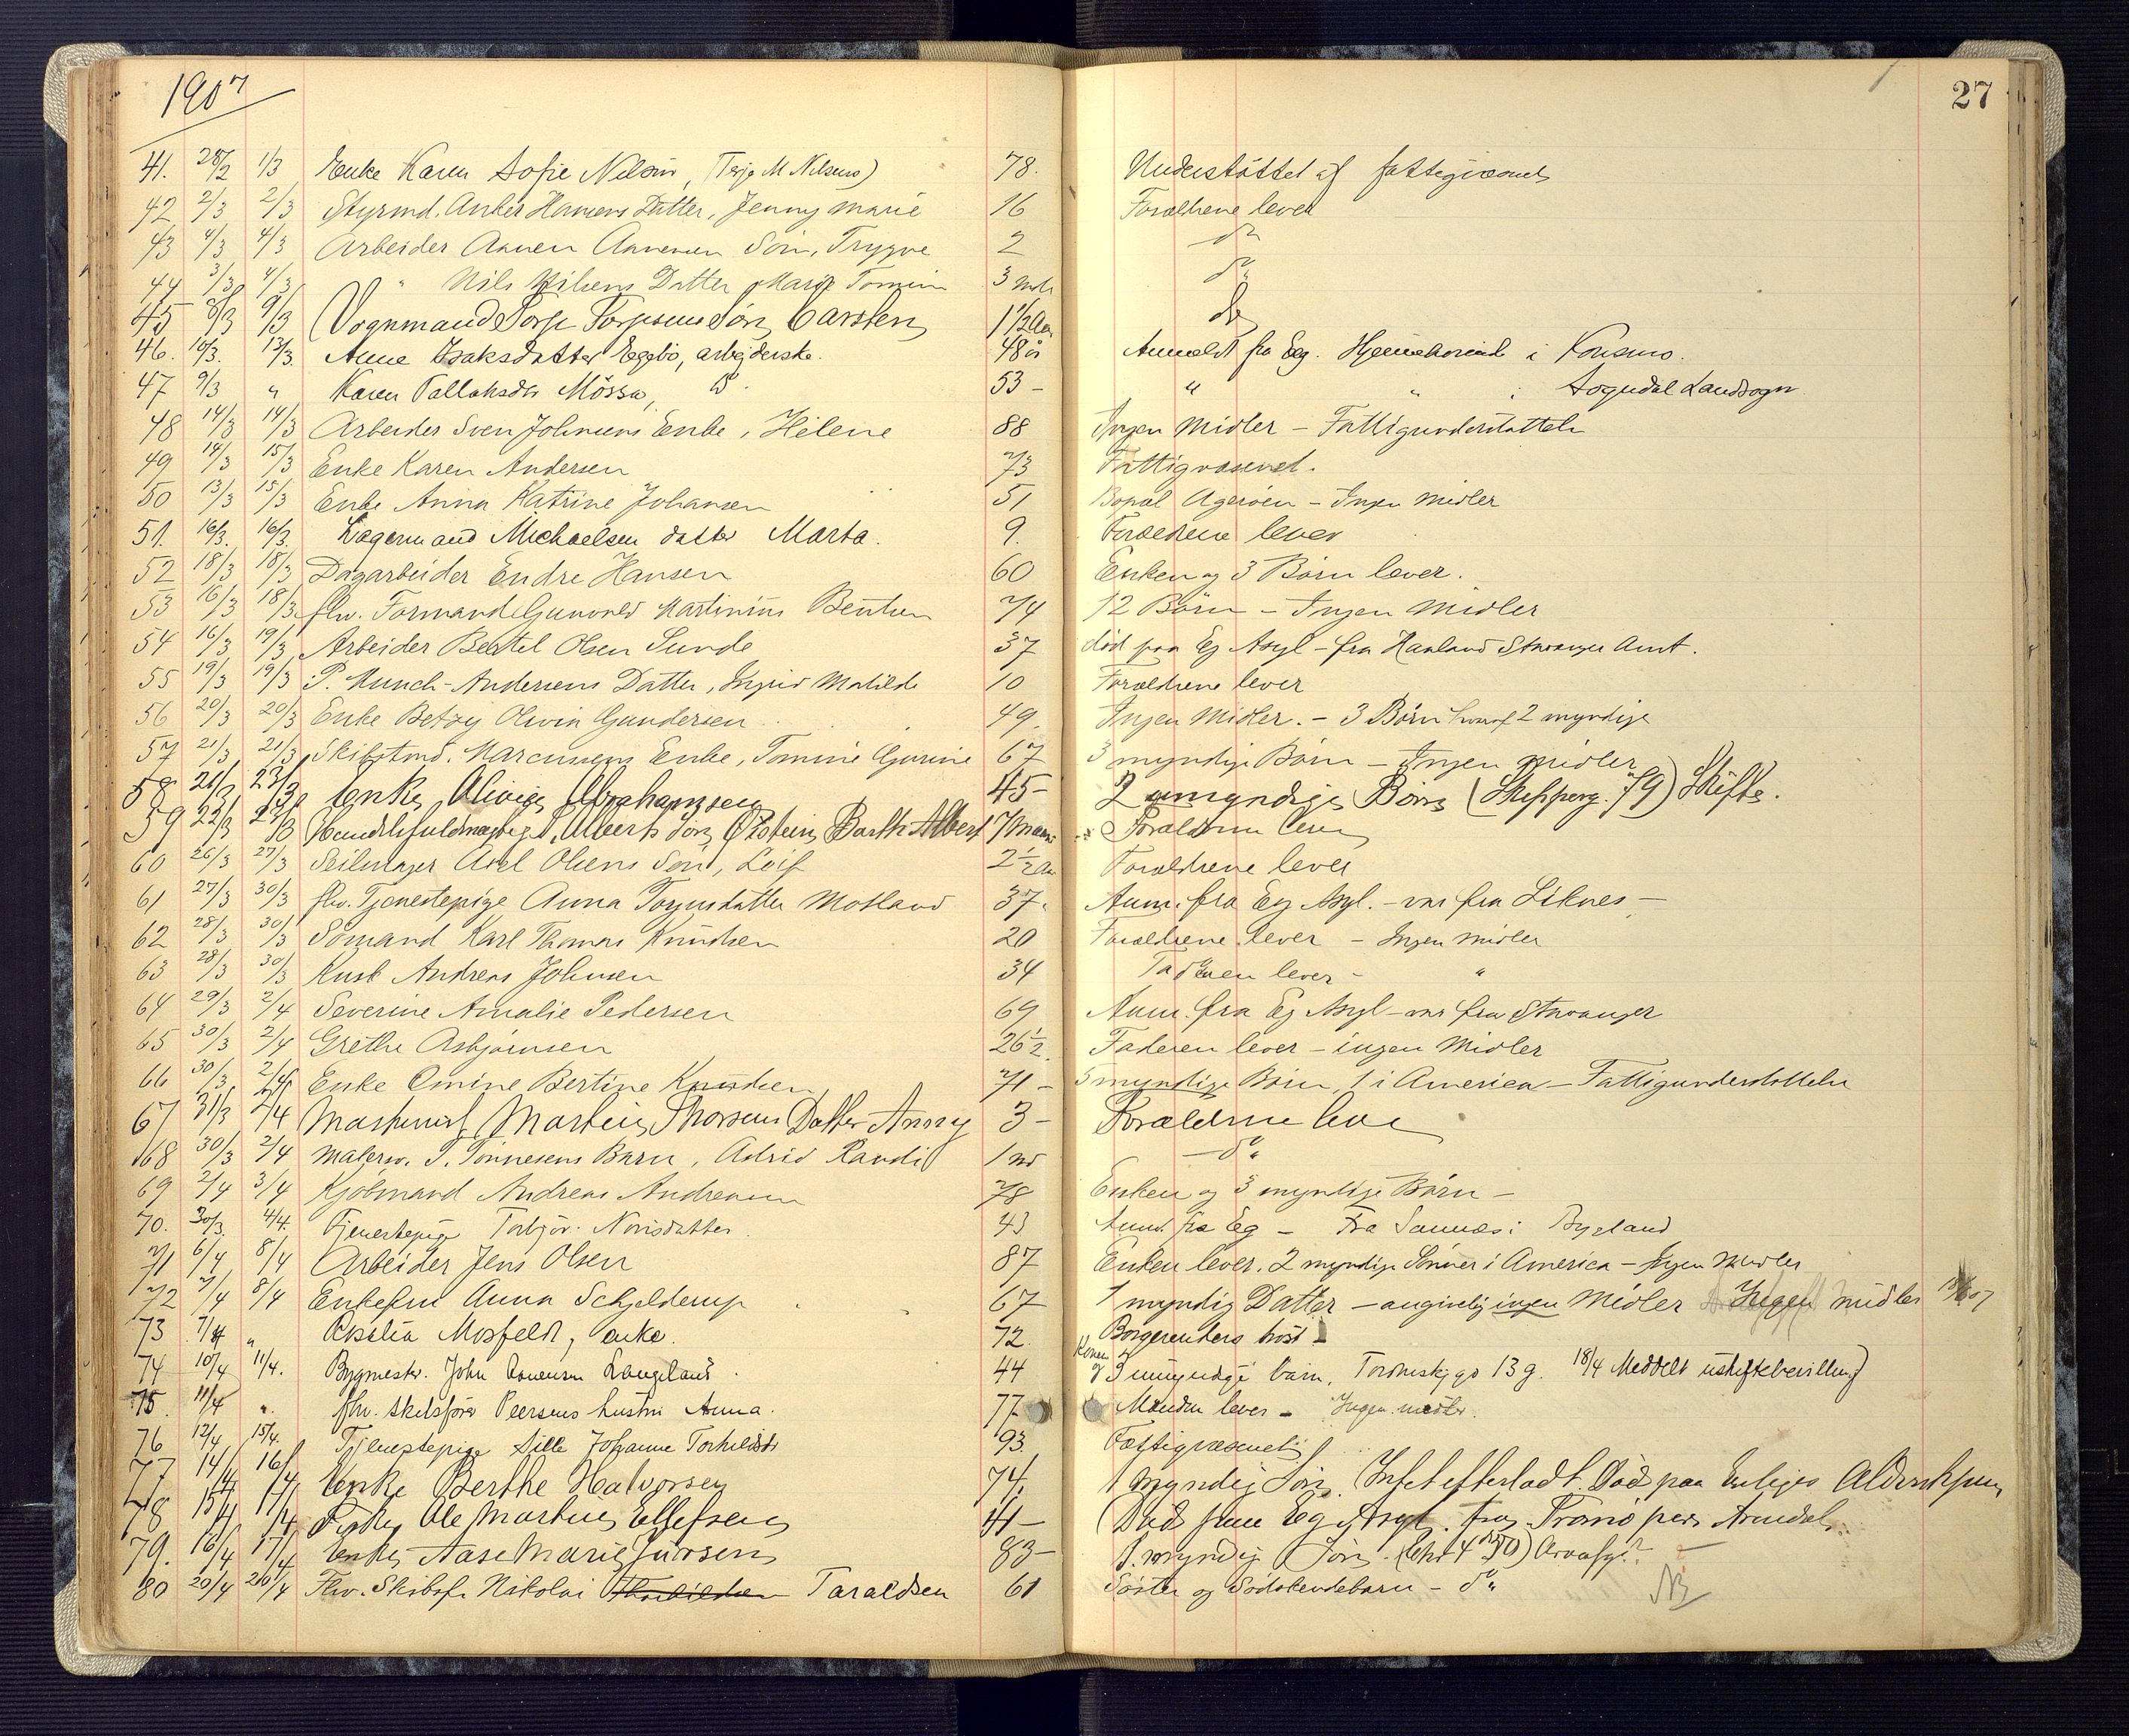 1907
27
41. 28/2 1/3 Enke Karen Sofie Nilsen, (Terje M Nilsens) 78. Understøttet af fattigvæsenet
42 2/3 2/3 Styrmd. Anker Hansens Datter, Jenny Marie 16 Forældrene lever
43 4/3 4/3 Arbeider Aanen Aanensen Søn, Trygve 2 do
44 3/3 4/3 " Nils Nilsens Datter Marie Tomine 3 mdr do
45 8/3 9/3 Vognmand Torje Torjesens Søn Carsten 1 1/2 Aar do
46. 10/3. 13/3. Anne Isaksdatter Eggebø, arbejderske. 48 år Anmeldt fra Eg. Hjemehørende i Konsmo.
47 9/3 " Karen Tallaksdr Mössa, do. 53 - " " i Sogndal Landsogn
48 14/3 14/3 Arbeider Sven Johnsens Enke, Helene 88 Ingen Midler - Fattigunderstøttelse
49 14/3 15/3 Enke Karen Andersen 73 Fattigvæsenet.
50 13/3 15/3 Enke Anna Katrine Johansen 51 Bopæl Agerøen - Ingen midler
51. 16/3. 16/3. Lagermand Michaelsen datter Marta. 9. Forældrene lever
52 18/3 18/3 Dagarbeider Endre Hansen 60 Enken og 3 Børn lever.
53 16/3 18/3 fhv. Formand Gunvald Martinius Bentsen 74 12 Børn - Ingen Midler
54 16/3 19/3 Arbeider Bertel Olsen Sunde 37 død paa Eg Asyl - fra Haaland Stavanger Amt.
55 19/3 19/3 P. Munch-Andersens Datter, Ingrid Matilde 10 Forældrene lever
56 20/3 20/3 Enke Betzy Olivia Gundersen 49. Ingen Midler. - 3 Børn hvoraf 2 myndige
57 21/3 21/3 Skibstmd. Marcussens Enke, Tomine Gurine 67 3 myndige Børn - Ingen midler
58 21/3 23/3 Enke Olivia Abrahamsen 45 - 2 umyndige Børn (Skipperg. 79) Skifte.
59 22/3 23/3 Handelsfuldmægtig Alberts Søn Øistein Barth Albert 7 Maan Forældrene lever
60 26/3 27/3 Seilmager Axel Olsens Søn, Leif 2 1/2 Aar Forældrene lever
61 27/3 30/3 fhv. Tjenestepige Anna Torjusdatter Mosland 37. Anm. fra Eg Asyl. - var fra Liknes -
62 28/3 30/3 Sømand Karl Thomas Knudsen 20 Forældrene lever - Ingen midler
63 28/3 30/3 Kusk Andreas Johnsen 34 Faderen lever - "
64 29/3 2/4 Severine Amalie Pedersen 69 Anm. fra Eg Asyl - var fra Stavanger
65 30/3 2/4 Grethe Asbjørnsen 26 1/2. Faderen lever - ingen Midler
66 30/3 2/4 Enke Omine Bertine Knudsen 71 - 5 myndige Børn, 1 i America - Fattigunderstøttelse
67 31/3 2/4 Maskinist Martin Thorsens Datter Anny 3 - Forældrene leve
68 30/3 2/4 Malersv. T. Tønnesens Barn, Astrid Randi 1 md - do
69 2/4 3/4 Kjøbmand Andreas Andreassen 78 Enken og 3 myndige Børn -
70. 30/3. 4/4. Tjenestepige Torbjør. Norisdatter. 43 Anm. fra Eg - Fra Sannæs i Bygland
71 6/4 8/4 Arbeider Jens Olsen 87 Enken lever. 2 myndige Sønner i America - Ingen Midler
72 7/4 8/4 Enkefru Anna Schjelderup 67 1 myndig Datter - angivelig ingen Midler Ingen midler
73 7/4 " Rosalia Mosfeldt, enke. 72. Borgerenkers hus -
74 10/4 11/4. Bygmester. John Aanensen Langeland. 44 Konen og 3 umyndige børn, Tordenskj gd 13 g. 18/4 Meddelt uskiftebevilling
75. 11/4 ". fhv. skibsfører Peersens hustru Anna. 77 Manden lever - Ingen midler.
76 12/4 15/4. Tjenestepige Sille Johanne Torkildsdr 93. Fattigvæsenet
77 14/4 16/4 Enke Berthe Halvorsen 74. 1 myndig Søn. Intet efterladt. Død paa Enliges Aldershjem
78 15/4 17/4 Fisker Ole Martin Ellefsen 41 - Død paa Eg Asyl. fra Tromø pers Arendal.
79. 16/4 17/4 Enke Aase Marie Jörsen 83 - 1. myndig Søn. Arvafg?
80 20/4 20/4 Fhv. Skibsf. Nikolai Taraldsen 61 Søster og Södskendebarn - do NB